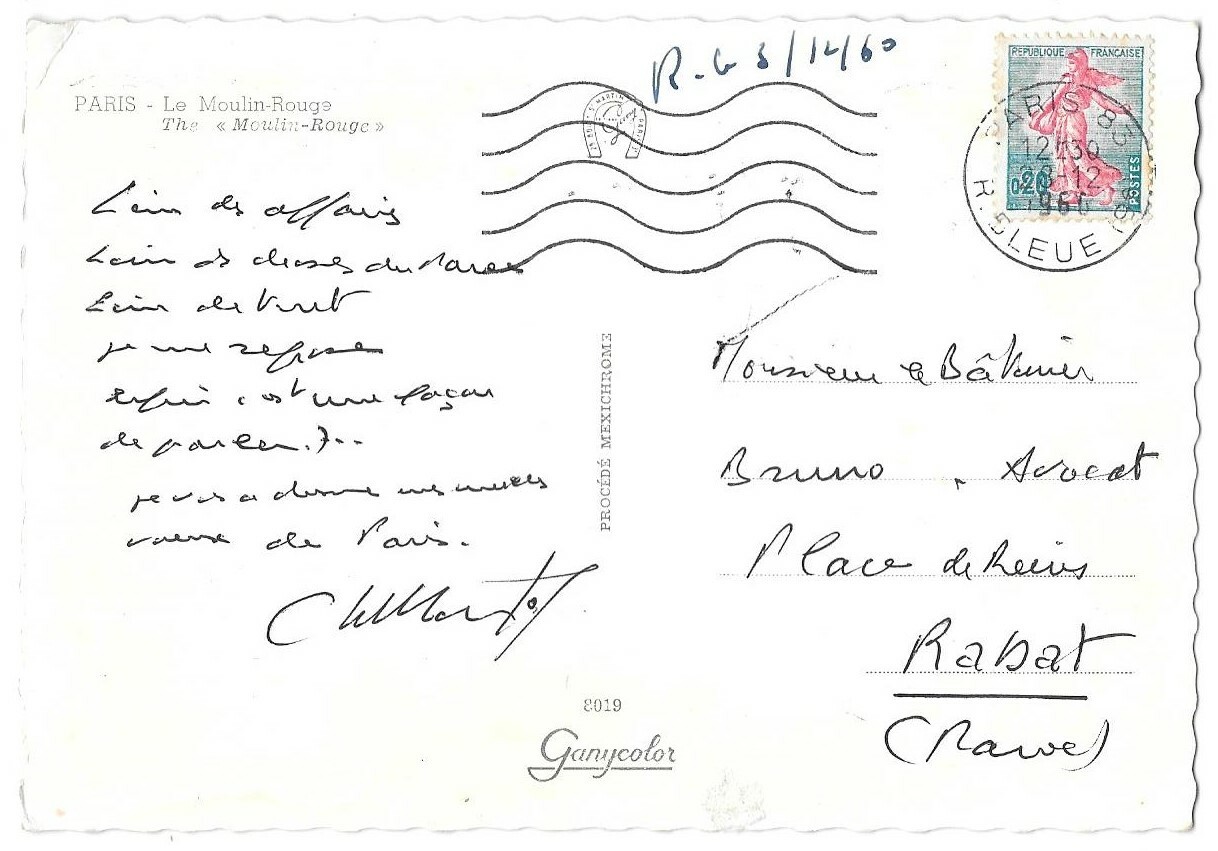 PARIS - Le Moulin-Rouge
The « Moulin-Rouge »
R. le 3/12/60
REPUBLIQUE FRANÇAISE
0,20
POSTES
PARIS 83
12H30
-12
1960
R. BLEUE (9e)
Loin des affaires
Loin des choses du Maroc
Loin de tout
je me repose
enfin c'est une façon
de parler...
je vous adresse mes meilleurs
voeux de Paris.
PROCÉDÉ MEXICHROME
Monsieur le Bâtonnier
Bruno, Avocat
Place de Reims
Rabat
(Maroc)
8019
Ganycolor